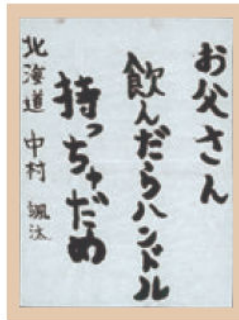 お父さん
飲んだらハンドル
持っちゃだめ
北海道 中村 颯汰